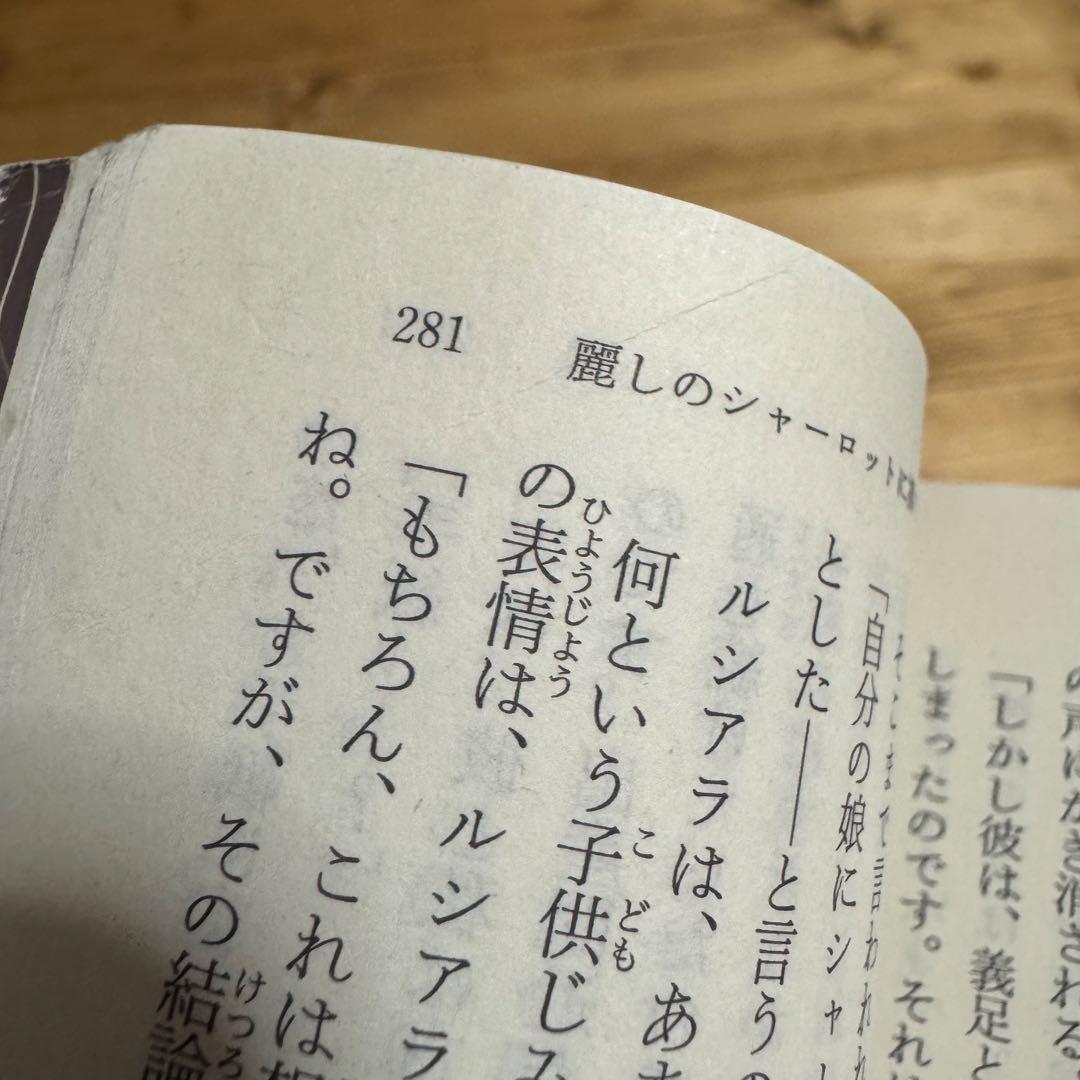 281
麗しのシャーロットに
の声はかき消される
「しかし彼は、義足と
しまったのです。それ
そこまで言われ
「自分の娘にシャ
とした――と言うの
ルシアラは、あ
何という子供じみ
の表情は、
「もちろん、ルシアラ
ね。ですが、これは
その結論
こども
ひようじよう
けつろ